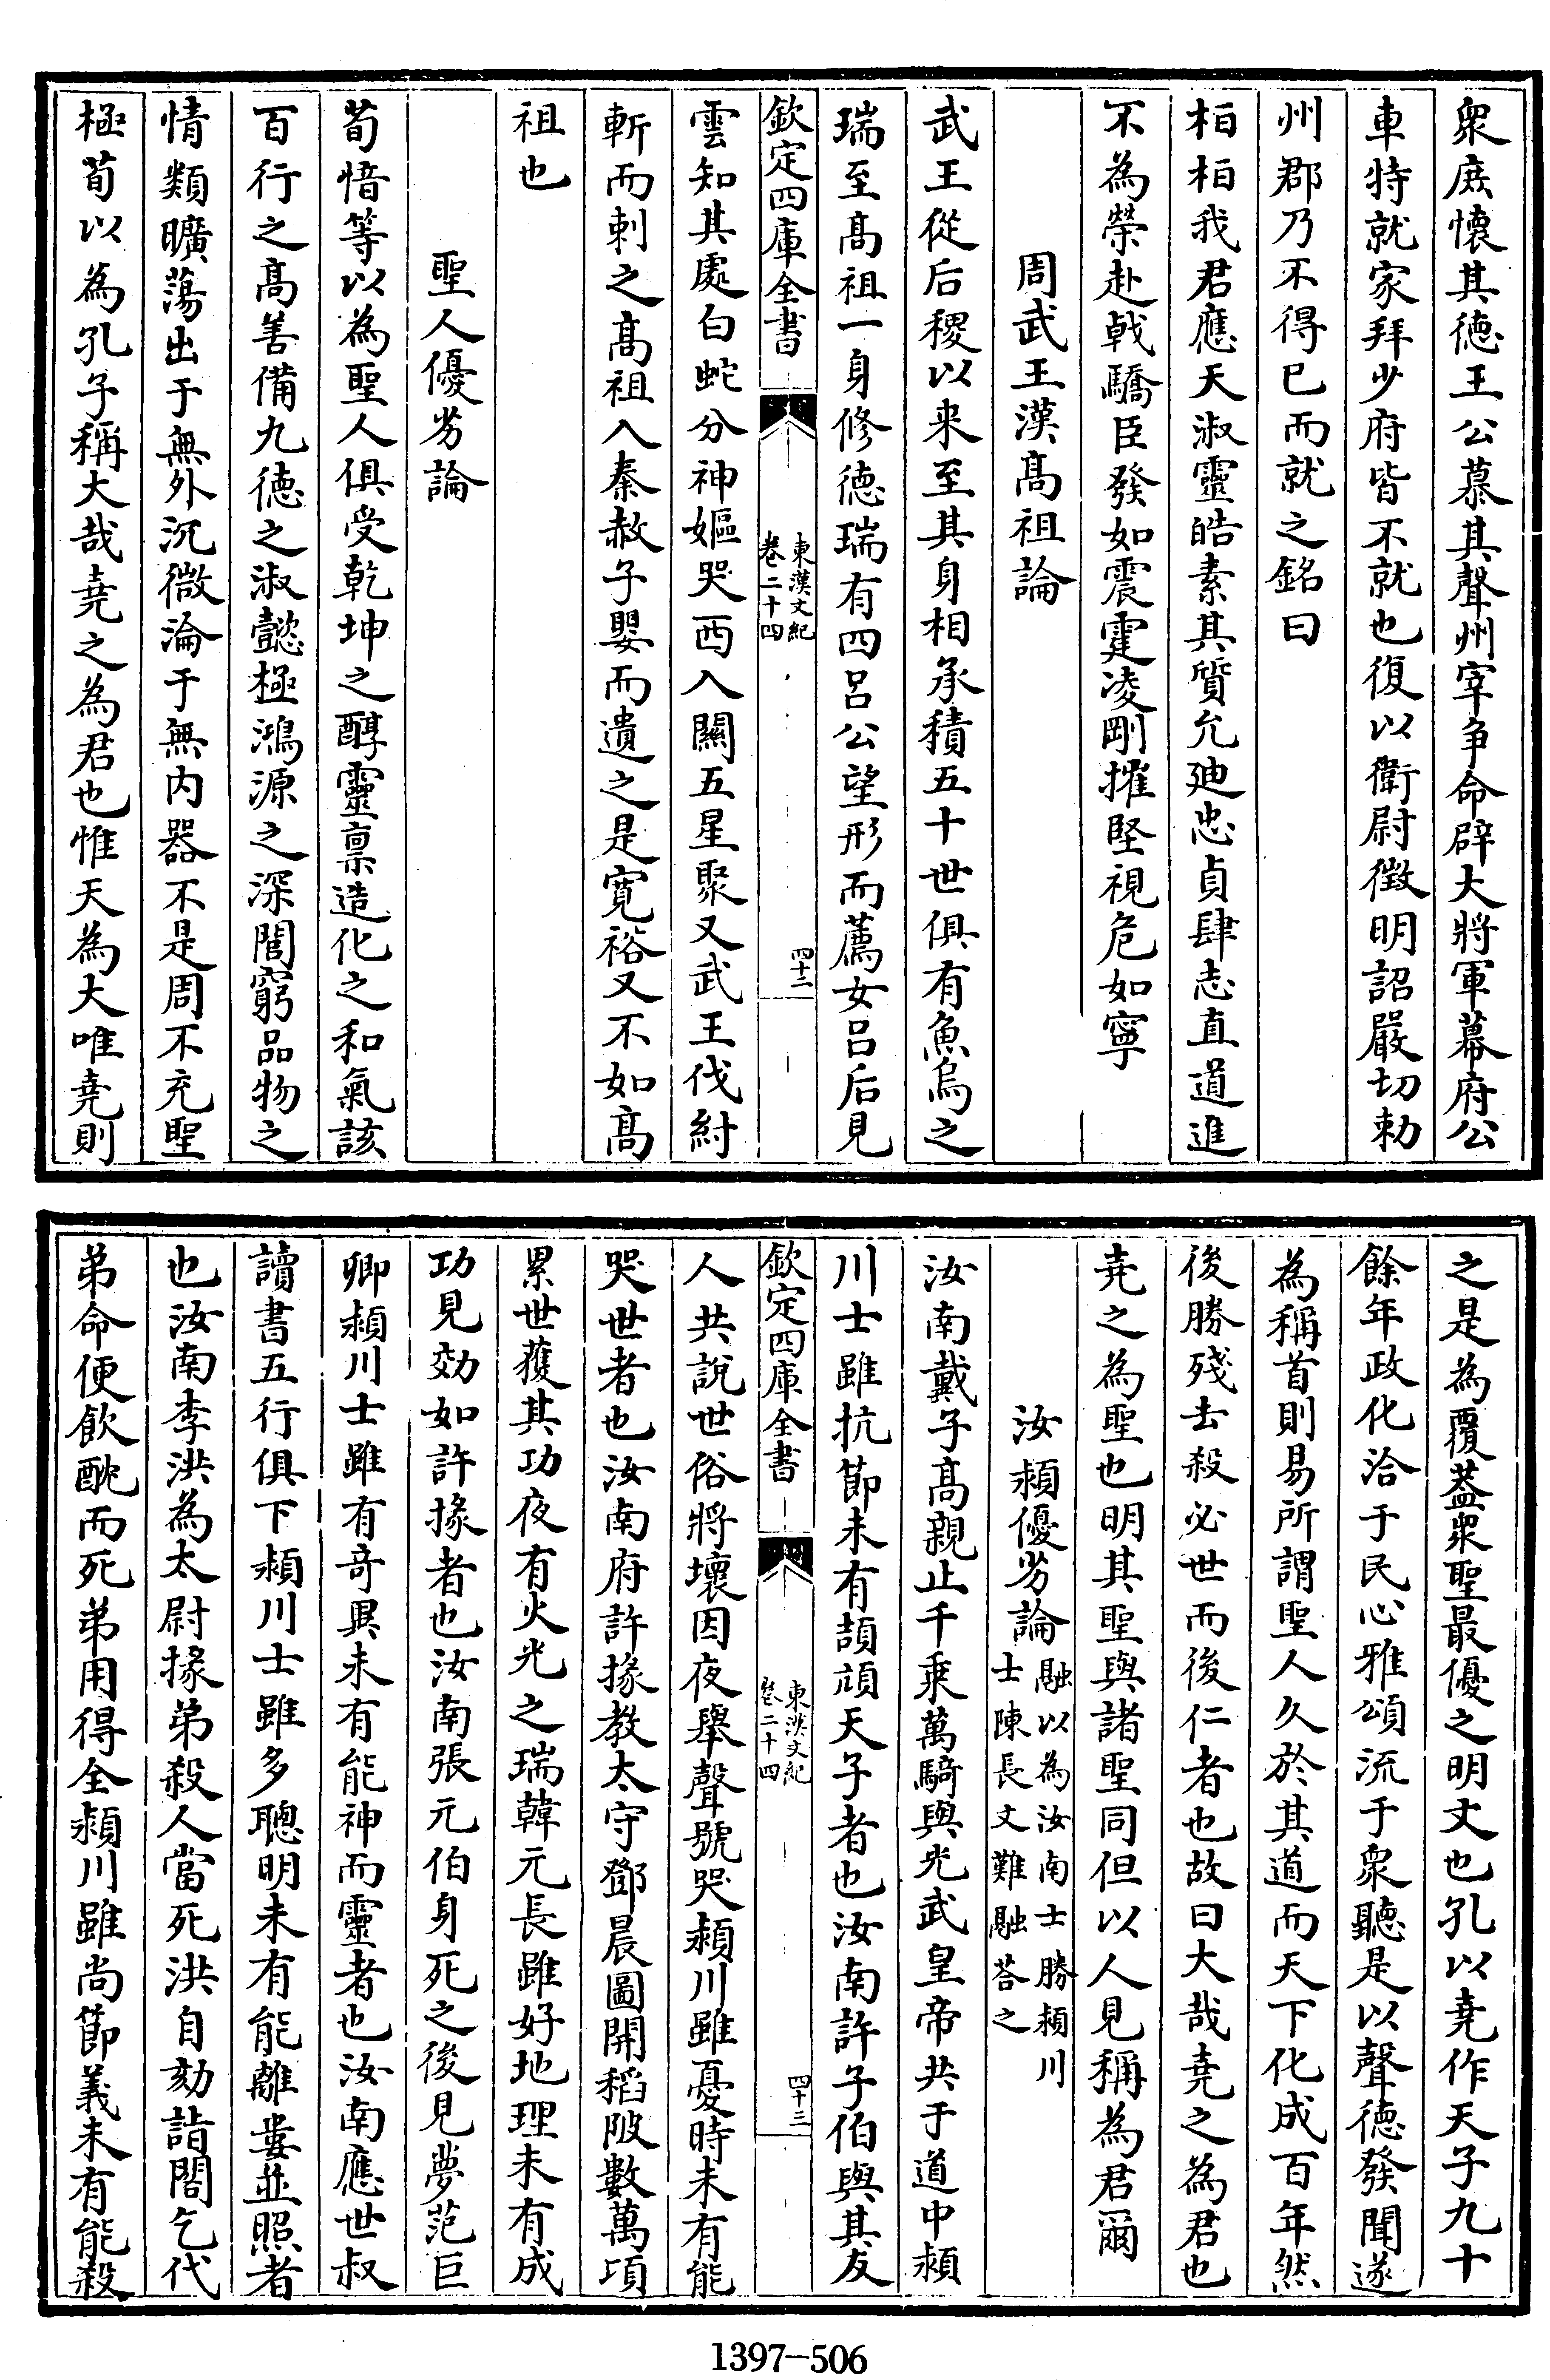 衆庶懐其徳王公慕其聲州宰争命辟大將軍幕府公
車特就家拜少府皆不就也復以衛尉徴明詔嚴切勅
州郡乃不得已而就之銘曰
栢栢我君應天淑靈皓素其質允廸忠貞肆志直道進
不為榮赴㦸驕臣發如震霆凌剛摧堅視危如寧
周武王漢髙祖論
武王從后稷以来至其身相承積五十世俱有魚烏之
瑞至髙祖一身修徳瑞有四呂公望形而薦女呂后見
欽定四庫全書
東漢文紀
卷二十四
四十二
雲知其處白蛇分神嫗哭西入關五星聚又武王伐紂
斬而刺之髙祖入秦赦子嬰而遺之是寛裕又不如髙
祖也
聖人優劣論
荀愔等以為聖人俱受乾坤之醇靈禀造化之和氣該
百行之髙善備九徳之淑懿極鴻源之深閭窮品物之
情類曠蕩出于無外沉微淪于無内器不是周不充聖
極荀以為孔子稱大哉堯之為君也惟天為大唯堯則
之是為覆葢衆聖最優之明文也孔以堯作天子九十
餘年政化洽于民心雅頌流于衆聽是以聲徳發聞遂
為稱首則易所謂聖人久於其道而天下化成百年然
後勝殘去殺必世而後仁者也故曰大哉堯之為君也
堯之為聖也明其聖與諸聖同但以人見稱為君爾
汝潁優劣論融以為汝南士勝潁川
士陳長文難融荅之
汝南戴子髙親止千乗萬騎與光武皇帝共于道中潁
川士雖抗節未有頡頏天子者也汝南許子伯與其友
欽定四庫全書
東漢文紀
卷二十四
四十三
人共說世俗將壞因夜舉聲號哭潁川雖憂時未有能
哭世者也汝南府許掾教太守鄧晨圖開稻陂數萬頃
累世獲其功夜有火光之瑞韓元長雖好地理未有成
功見効如許掾者也汝南張元伯身死之後見夢范巨
卿潁川士雖有竒異未有能神而靈者也汝南應世叔
讀書五行俱下潁川士雖多聰明未有能離婁並照者
也汝南李洪為太尉掾弟殺人當死洪自劾詣閤乞代
弟命便飲酖而死弟用得全潁川雖尚節義未有能殺
1397-506